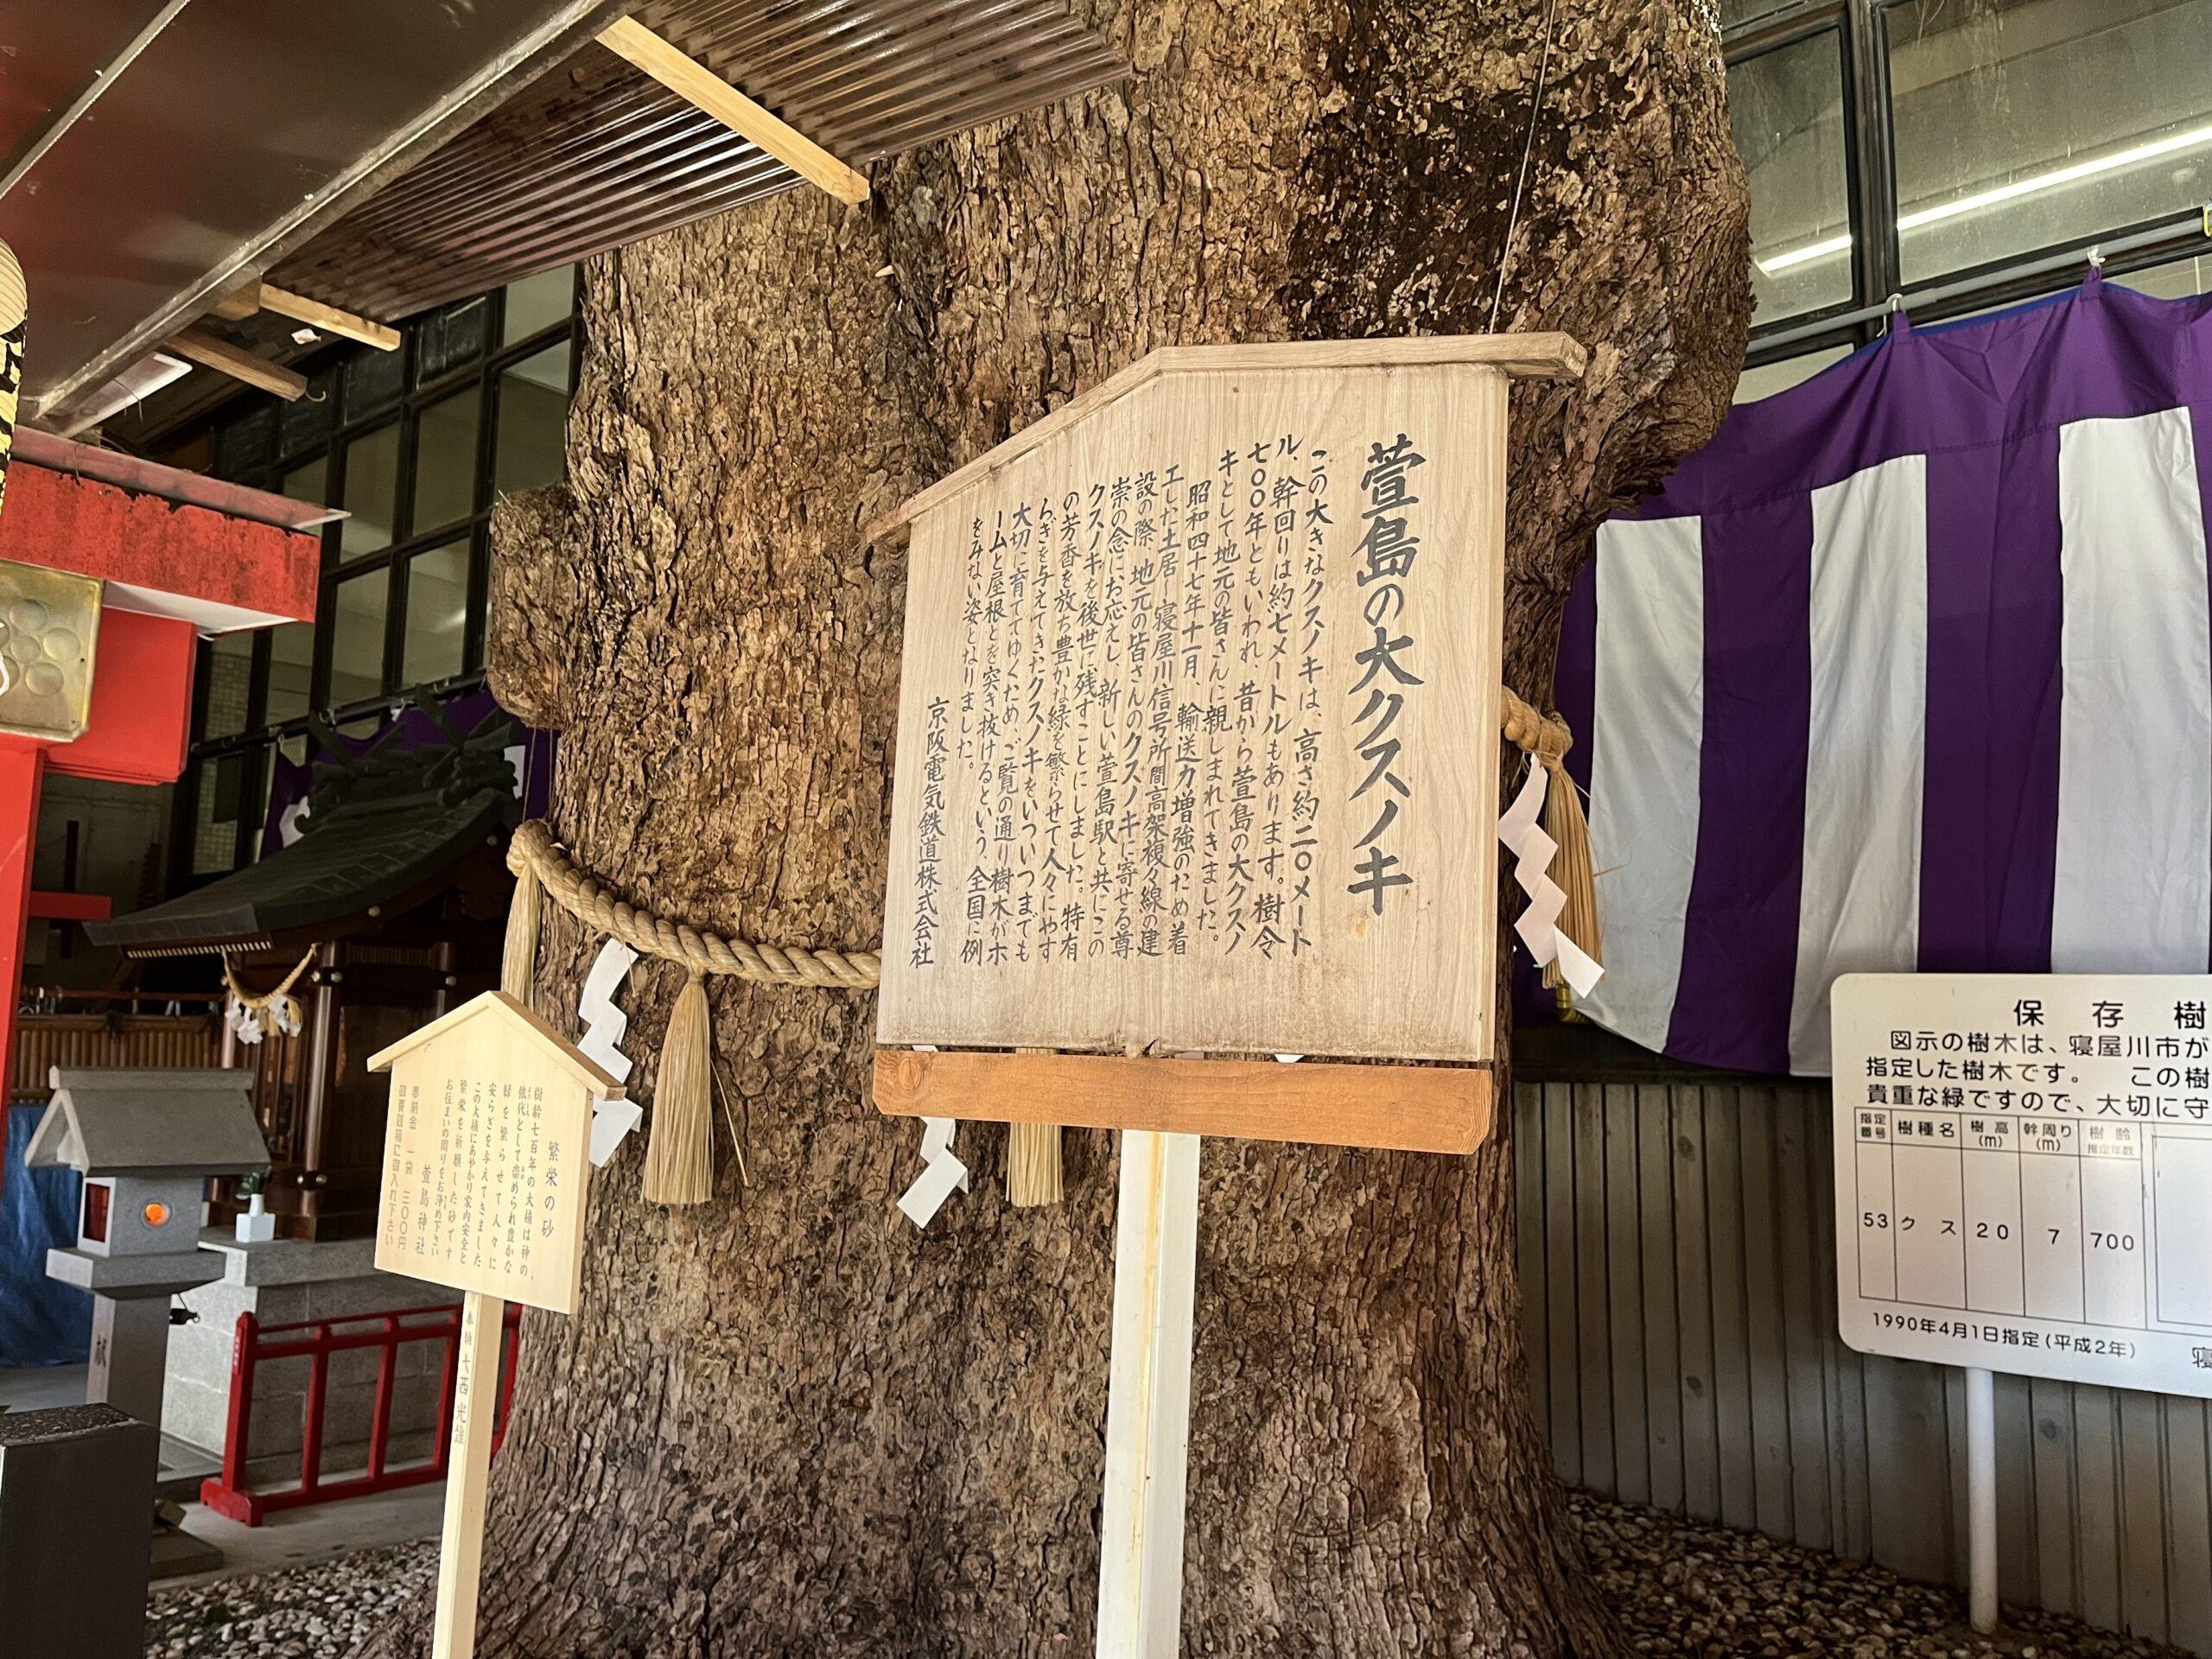 萱島の大クスノキ
この大きなクスノキは、高さ約二〇メート
ル、幹回りは約七メートルもあります。樹令
七〇〇年ともいわれ、昔から萱島の大クスノ
キとして地元の皆さんに親しまれてきました。
昭和四十七年十一月、輸送力増強のため着
工した土居ー寝屋川信号所間高架複々線の建
設の際、地元の皆さんのクスノキに寄せる尊
崇の念にお応えし、新しい萱島駅と共にこの
クスノキを後世に残すことにしました。特有
の芳香を放ち豊かな緑を繁らせて人々にやす
らぎを与えてきたクスノキをいついつまでも
大切に育ててゆくため、ご覧の通り樹木がホ
ームと屋根とを突き抜けるという、全国に例
をみない姿となりました。
京阪電気鉄道株式会社
繁栄の砂
樹齢七百年の大楠は神の
依代として崇められ豊かな
緑を繁らせて人々に
安らぎを与えてきました
この大楠にあやかり家内安全と
繁栄を祈願した砂です
お住まいの周りをお浄め下さい
萱島神社
奉納金 一袋 三〇〇円
御賽銭箱に御入れ下さい
奉納
献
保存樹
図示の樹木は、寝屋川市が
指定した樹木です。 この樹
貴重な緑ですので、大切に守
指定番号 樹種名 樹高(m) 幹周り(m) 樹齢 指定年数
53 クス 20 7 700
1990年4月1日指定(平成2年)
寝